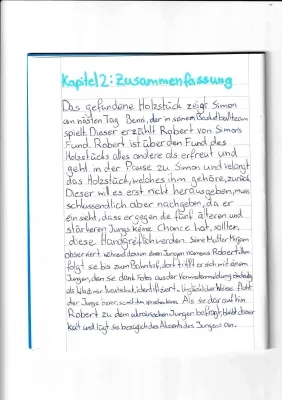 Kapitel 2: Zusammenfassung
Das gefundene Holzstück zeigt Simon
am näxten Tag Benni, der in seinem Basketballteam
spielt. Dieser erzählt Robert von Simons
Fund. Robert ist über den Fund des
Holzstücks alles andere als erfreut und
geht in der Pause zu Simon und verlangt
das Holzstück, welches ihm gehöre, zurück.
Dieser will es erst nicht herausgeben, muss
schlussendlich aber nachgeben, da er
ein sieht, dass er gegen die fünf älteren und
stärkeren Jungs keine Chance hat, sollten
diese Handgreiflich werden. Seine Mutter Mirjam
observiert während dessen einen Jungen namens Robert. Ihm
folgt sie bis zum Bahnhof, dort trifft er sich mit einem
Jungen, den sie dank Fotos aus der Vermisstenmeldung eindeutig
als Wladimir identifiziert. Unglücklicher Weise flieht
der Junge bevor sie mit ihm sprechen kann. Als sie darauf hin
Robert zu dem ukrainischen Jungen befragt, bleibt dieser
kalt und lügt sie bezüglich des Akzents des Jungens an.